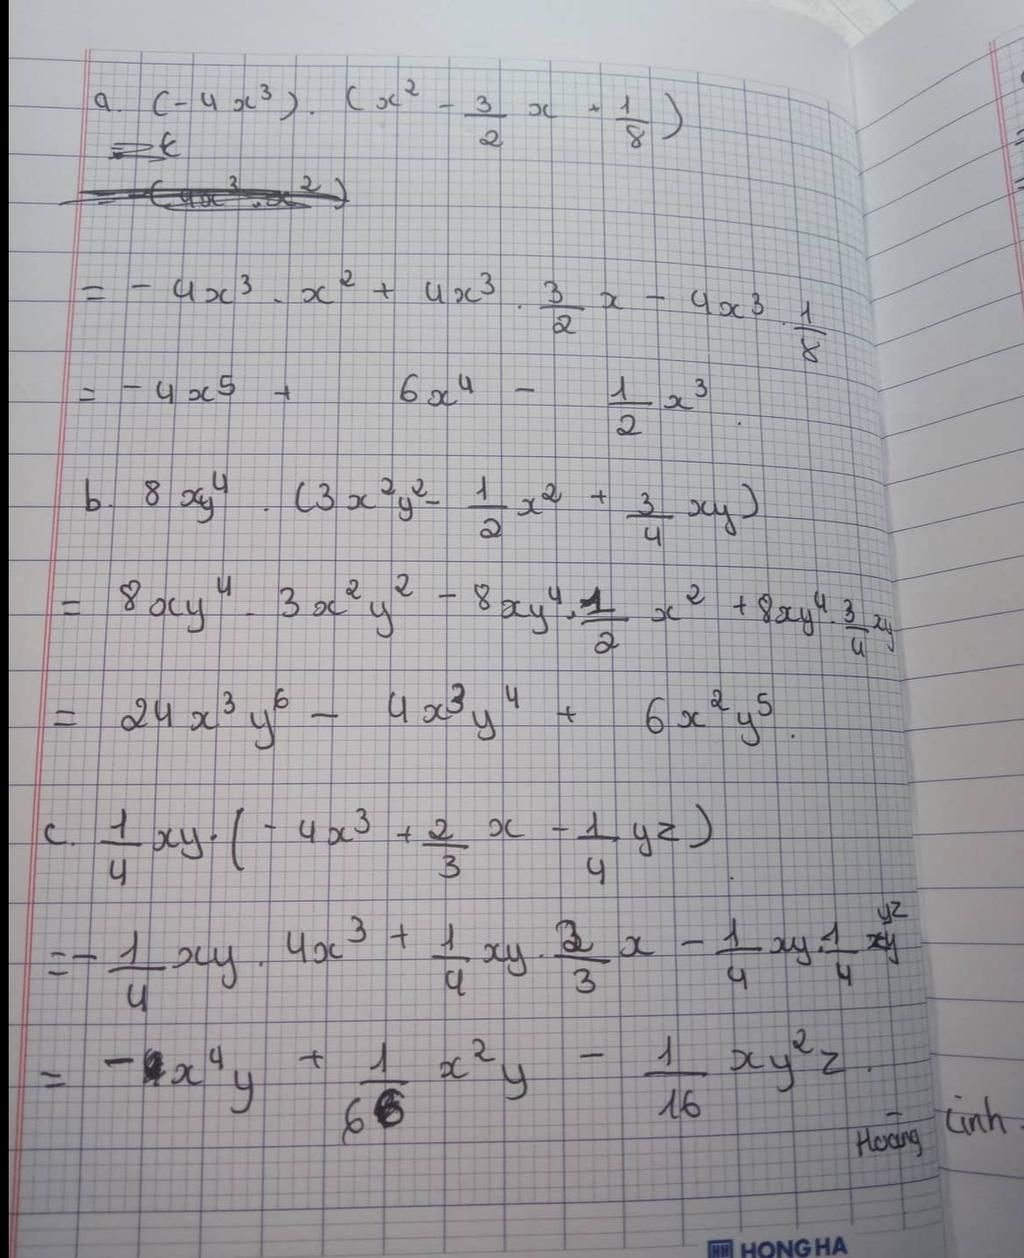 a. (-4x³). (x² - 3/2 x + 1/8)
= - 4x³ . x² + 4x³ . 3/2 x - 4x³ . 1/8
= - 4x⁵ + 6x⁴ - 1/2 x³.
b. 8xy⁴ . (3x²y² - 1/2 x² + 3/4 xy)
= 8xy⁴ . 3x²y² - 8xy⁴ . 1/2 x² + 8xy⁴ . 3/4 xy
= 24x³y⁶ - 4x³y⁴ + 6x²y⁵.
c. 1/4 xy . (- 4x³ + 2/3 x - 1/4 yz).
= - 1/4 xy . 4x³ + 1/4 xy . 2/3 x - 1/4 xy . 1/4 yz
= - x⁴y + 1/6 x²y - 1/16 xy²z.
Hoàng Linh
HH HONG HA